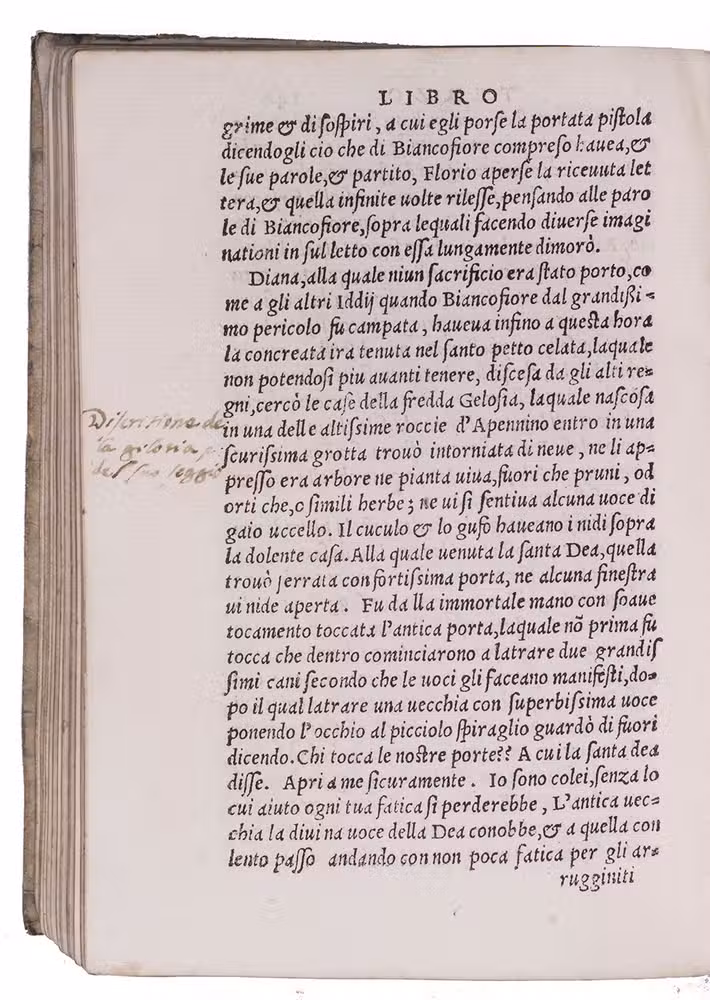 LIBRO
grime & di sospiri, a cui egli porse la portata pistola
dicendogli cio che di Biancofiore compreso hauea,&
le sue parole,& partito, Florio aperse la riceuuta let
tera,& quella infinite uolte rilesse,pensando alle paro
le di Biancofiore,sopra lequali facendo diuerse imagi
nationi in sul letto con essa lungamente dimorò.
Diana,alla quale niun sacrificio era stato porto,co
me a gli altri Iddij quando Biancofiore dal grandissi=
mo pericolo fu campata, haueua infino a questa hora
la concreata ira tenuta nel santo petto celata,laquale
non potendosi piu auanti tenere, discesa da gli alti re=
gni,cercò le case della fredda Gelosia, laquale nascosa
in una delle altissime roccie d'Apennino entro in una
scurissima grotta trouò intorniata di neue, ne li ap=
presso era arbore ne pianta uiua,fuori che pruni, od
orti che,o simili herbe; ne ui si sentiua alcuna uoce di
gaio uccello. Il cuculo & lo gufo haueano i nidi sopra
la dolente casa. Alla quale uenuta la santa Dea,quella
trouò serrata con fortissima porta, ne alcuna finestra
ui nide aperta. Fu da lla immortale mano con soaue
tocamento toccata l'antica porta,laquale nõ prima fu
tocca che dentro cominciarono a latrare due grandis
simi cani secondo che le uoci gli faceano manifesti,do=
po il qual latrare una uecchia con superbissima uoce
ponendo l'occhio al picciolo spiraglio guardò di fuori
dicendo. Chi tocca le nostre porte?? A cui la santa dea
disse. Apri a me sicuramente. Io sono colei,senza lo
cui aiuto ogni tua fatica si perderebbe, L'antica uec=
chia la diuina uoce della Dea conobbe,& a quella con
lento passo andando con non poca fatica per gli ar=
rugginiti
Discritione de
la gilosia
del suo seggio